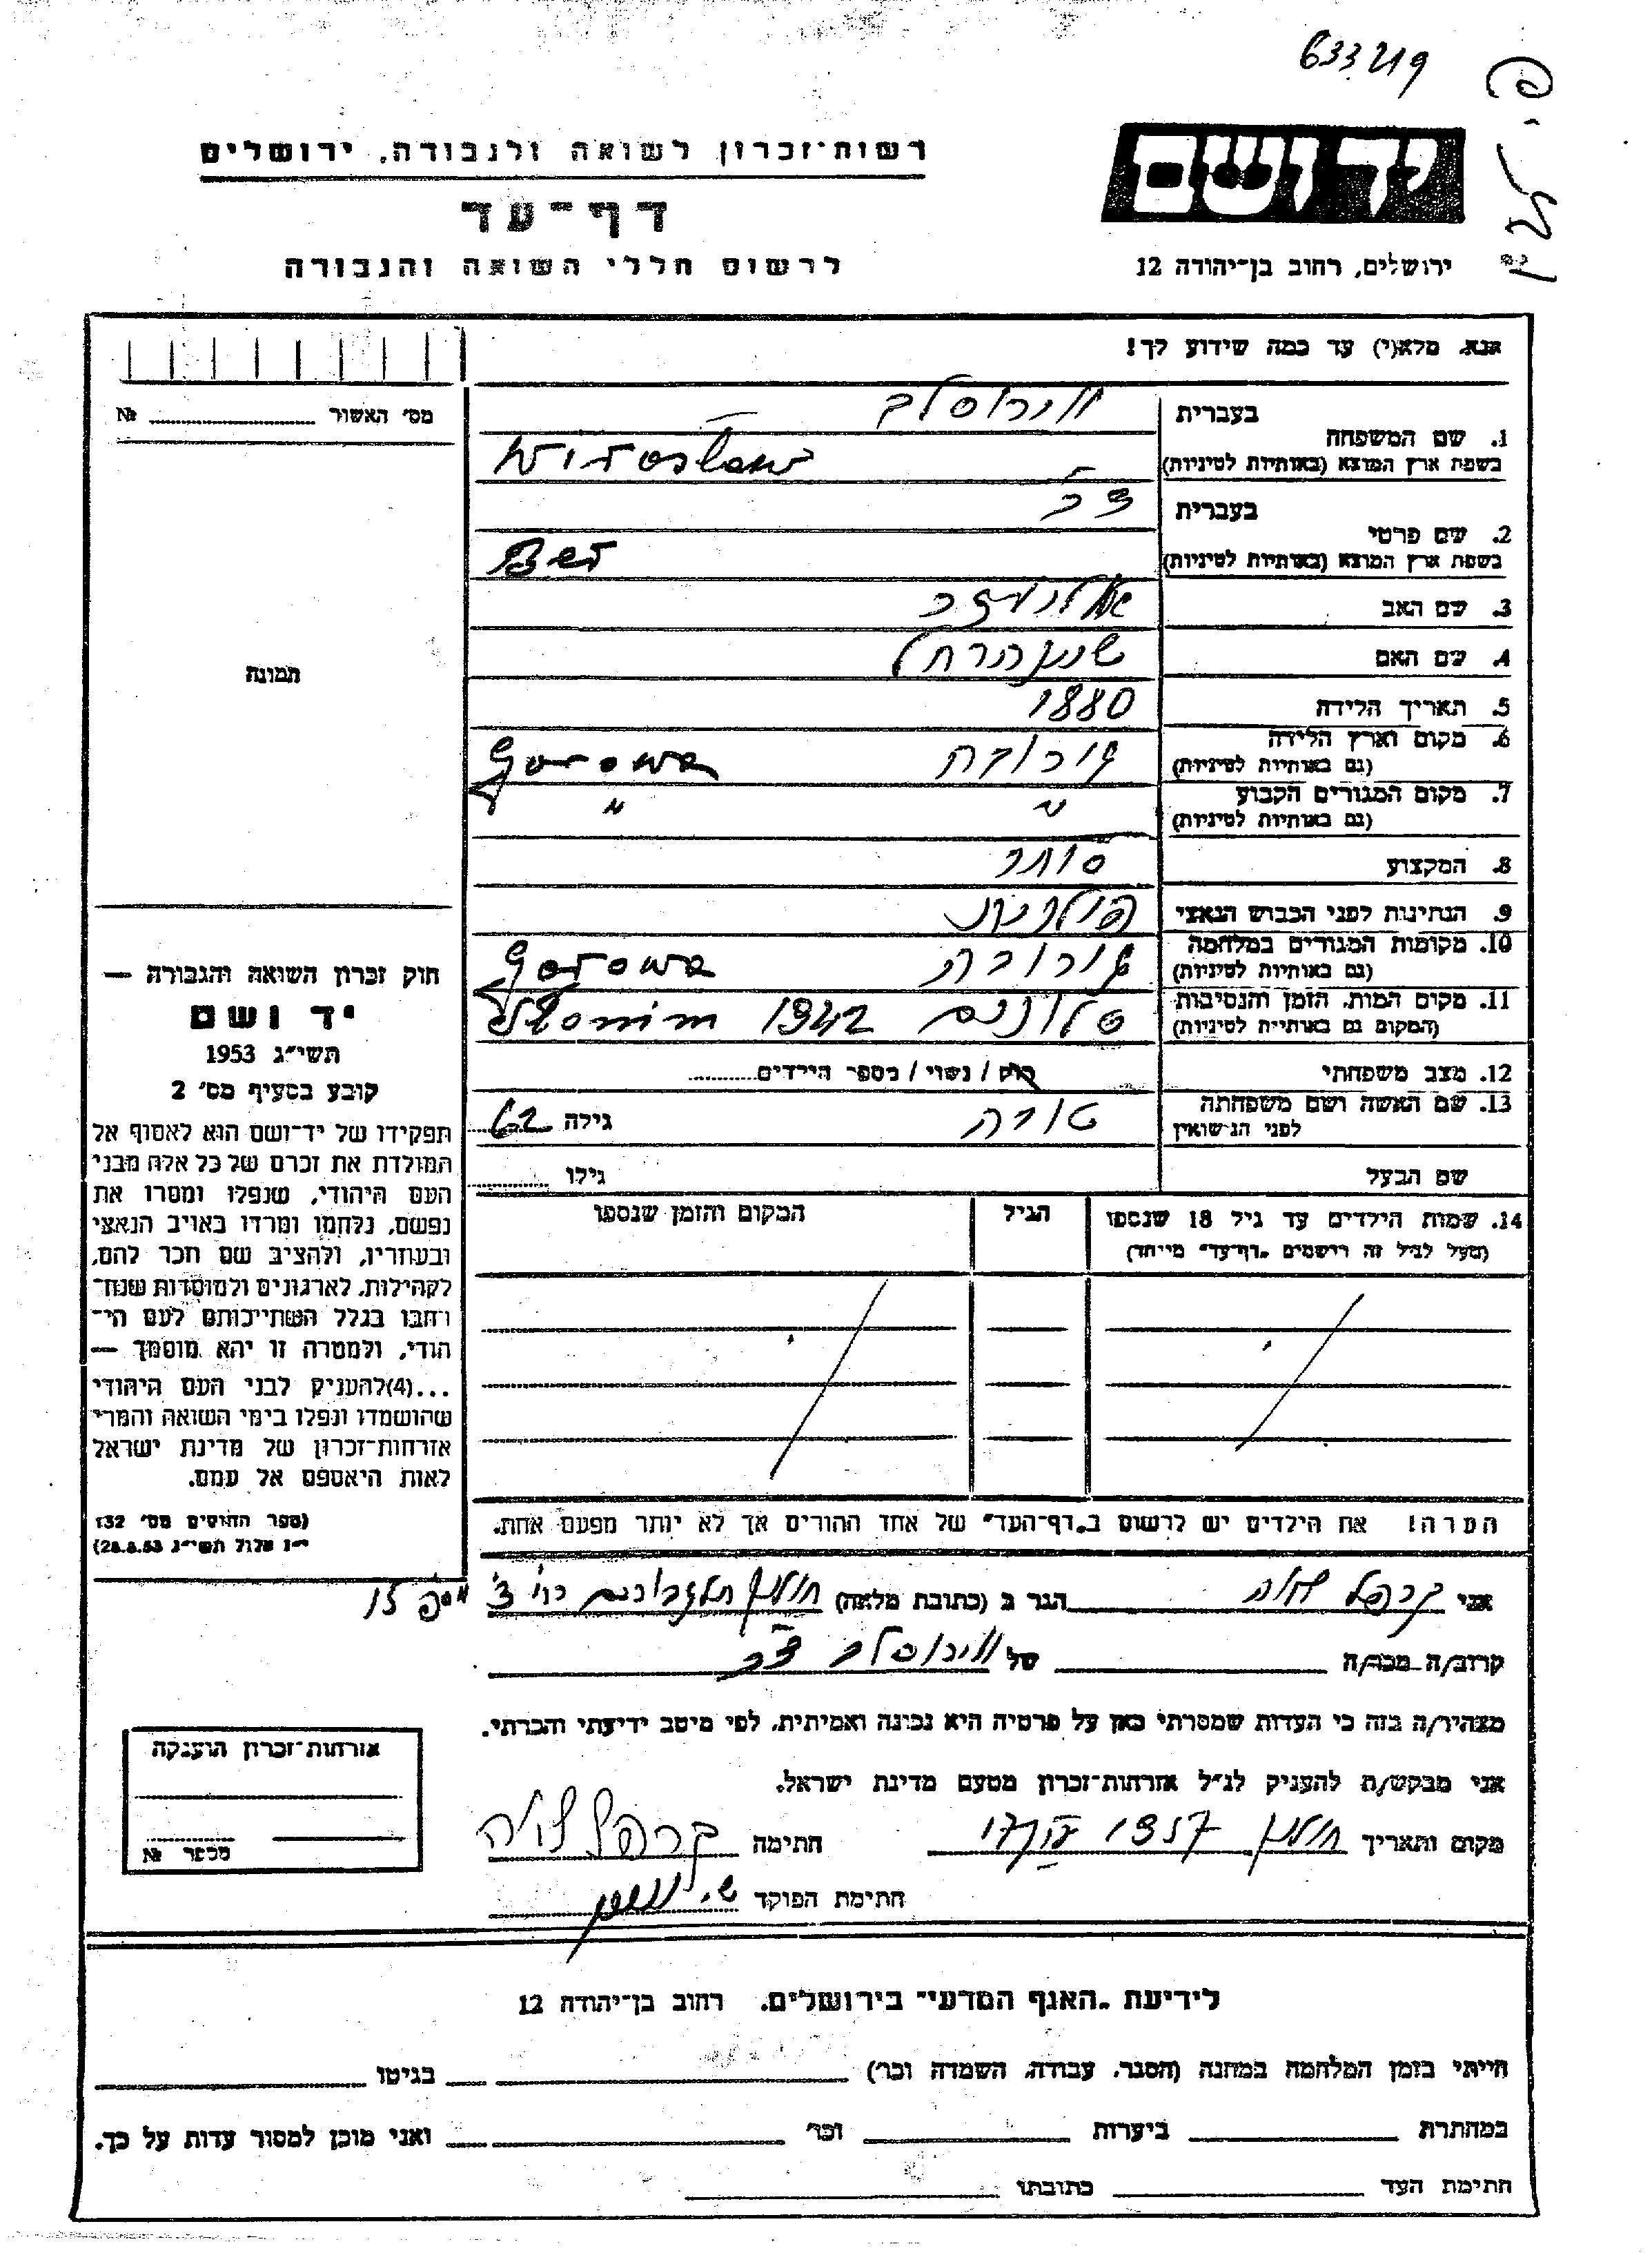 633219
רשות־זכרון לשואה ולגבורה, ירושלים
יד ושם
דף־עד
לרשום חללי השואה והגבורה
ירושלים, רחוב בן־יהודה 12
אנא, מלא(י) עד כמה שידוע לך!
מס׳ האשור № 
1. שם המשפחה
בעברית
בשפת ארץ המוצא (באותיות לטיניות)
Wirosław
2. שם פרטי
בעברית
דב
בשפת ארץ המוצא (באותיות לטיניות)
Ber
3. שם האב
אליעזר
4. שם האם
5. תאריך הלידה 1880
6. מקום וארץ הלידה
(גם באותיות לטיניות)
Gorowa
7. מקום המגורים הקבוע
(גם באותיות לטיניות)
" "
8. המקצוע סוחר
9. הנתינות לפני הכבוש הנאצי פולנית
10. מקומות המגורים במלחמה
(גם באותיות לטיניות)
Gorowa
11. מקום המות, הזמן והנסיבות
(המקום גם באותיות לטיניות)
סלונים 1942 Słonim
12. מצב משפחתי רווק / נשוי / מספר הילדים
13. שם האשה ושם משפחתה
לפני הנישואין
טובה גילה 62
שם הבעל גילו
14. שמות הילדים עד גיל 18 שנספו הגיל המקום והזמן שנספו
(מעל לגיל זה רושמים "דף־עד" מיוחד)
הערה! את הילדים יש לרשום ב"דף־העד" של אחד ההורים אך לא יותר מפעם אחת.
תמונה
חוק זכרון השואה והגבורה —
יד ושם
תשי״ג 1953
קובע בסעיף מס׳ 2
תפקידו של יד־ושם הוא לאסוף אל
המולדת את זכרם של כל אלה מבני
העם היהודי, שנפלו ומסרו את
נפשם, נלחמו ומרדו באויב הנאצי
ובעוזריו, ולהציב שם וזכר להם,
לקהילות, לארגונים ולמוסדות שנח־
רבו בגלל השתייכותם לעם הי־
הודי, ולמטרה זו יהא מוסמך —
...(4)להעניק לבני העם היהודי
שהושמדו ונפלו בימי השואה והמרי
אזרחות־זכרון של מדינת ישראל
לאות היאספם אל עמם.
(ספר החוקים מס׳ 132
י״ז אלול תשי״ג 28.8.53)
אני קרפל חיה הגר ב (כתובת מלאה) חולון
קרוב/ה מכר/ה של
מצהיר/ה בזה כי העדות שמסרתי כאן על פרטיה היא נכונה ואמיתית, לפי מיטב ידיעתי והכרתי.
אני מבקש/ת להעניק לנ״ל אזרחות־זכרון מטעם מדינת ישראל.
מקום ותאריך חולון חתימה קרפל חיה
חתימת הפוקד
אזרחות־זכרון הוענקה
מספר №
לידיעת "האגף המדעי" בירושלים, רחוב בן־יהודה 12
הייתי בזמן המלחמה במחנה (הסגר, עבודה, השמדה וכו׳) בגיטו
במחתרת ביערות וכו׳ ואני מוכן למסור עדות על כך.
חתימת העד כתובתו